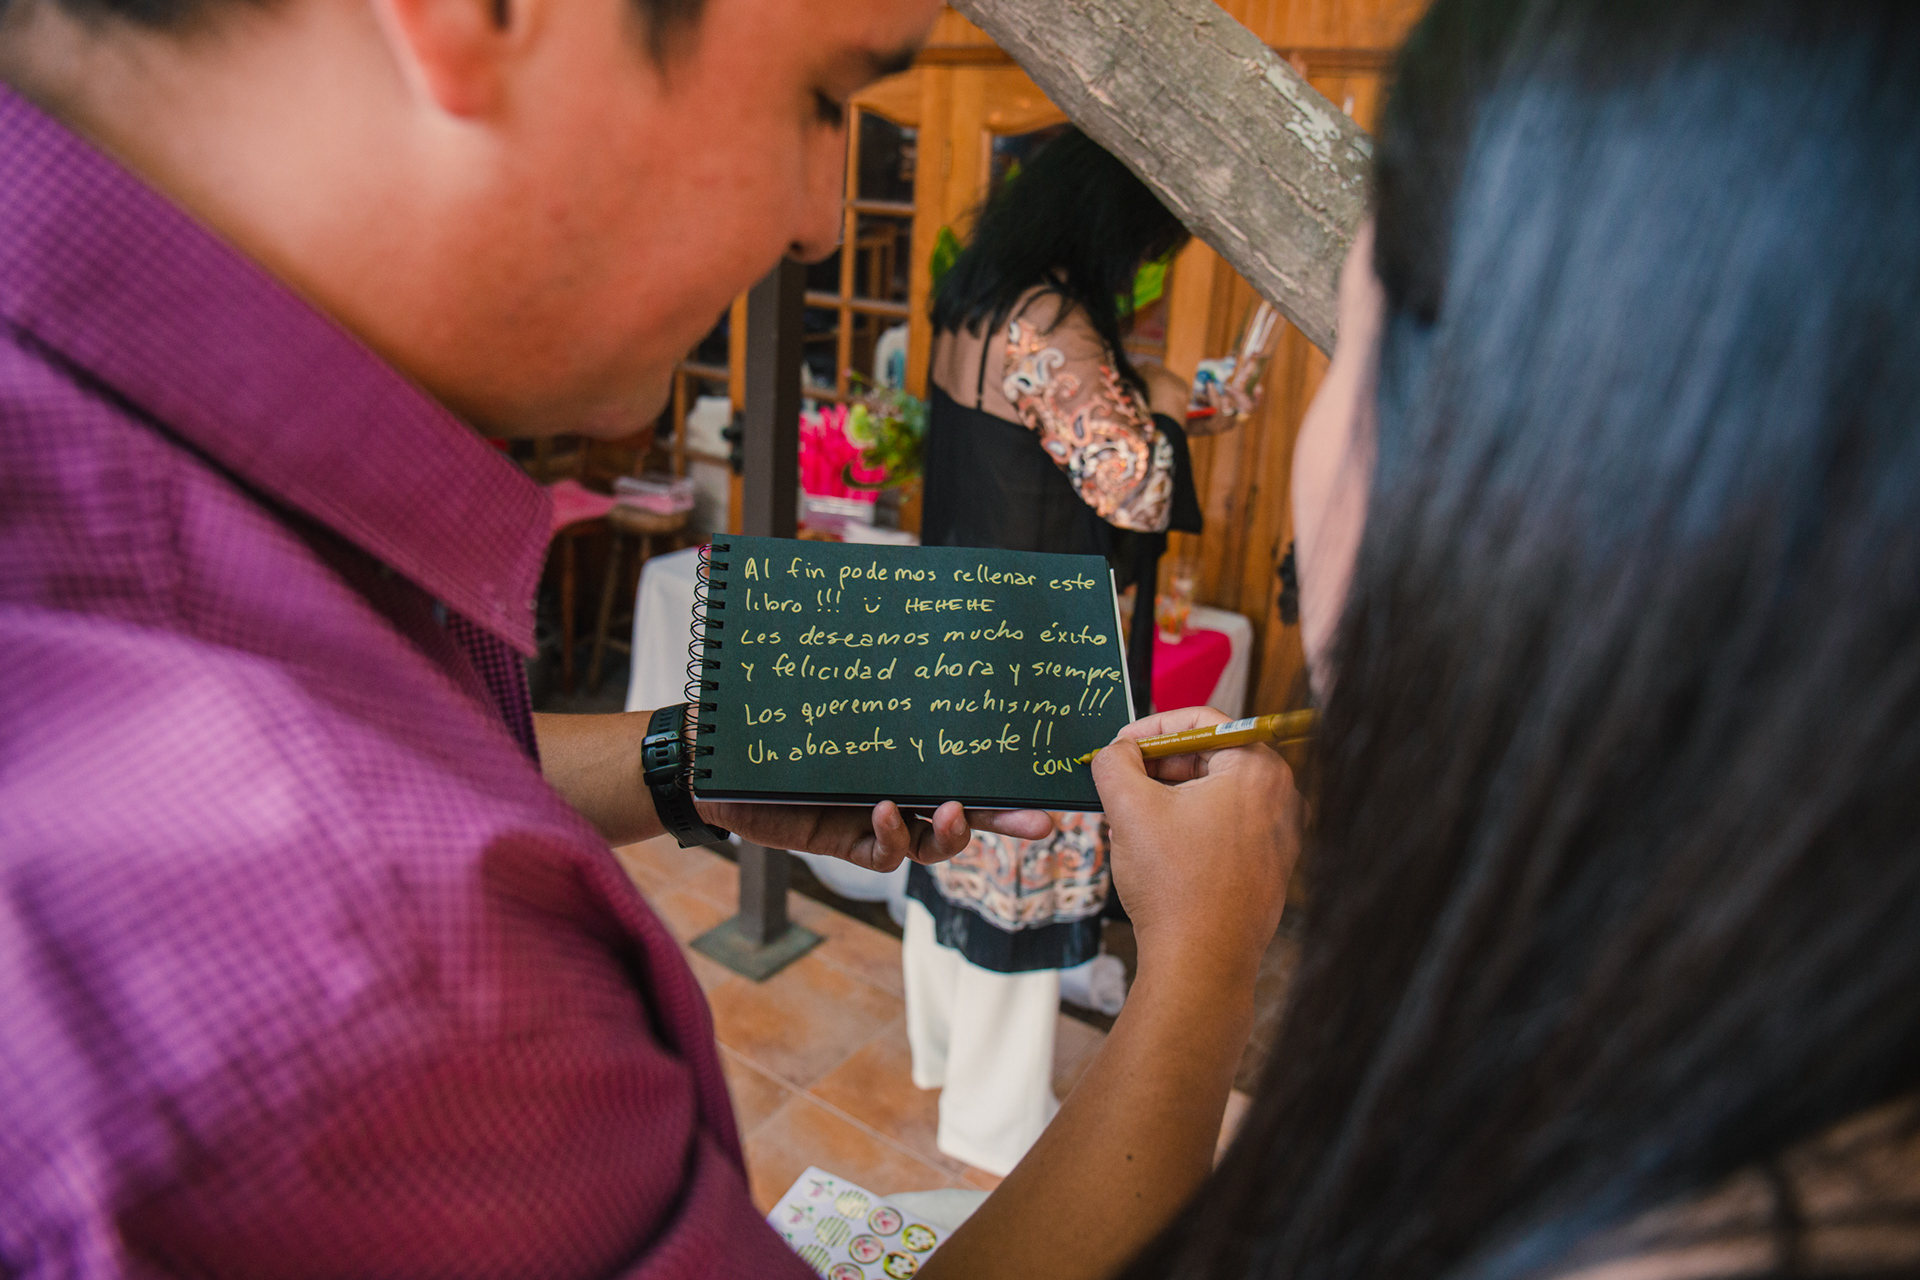 Al fin podemos rellenar este
libro!!! Ü HEHEHE
Les deseamos mucho éxito
y felicidad ahora y siempre.
Los queremos muchisimo!!!
Un abrazote y besote!!
CON